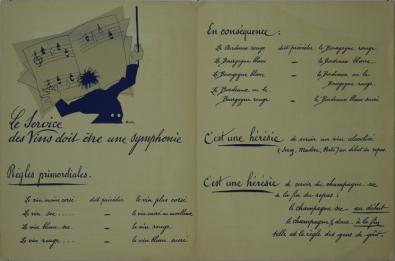 Le Service
des Vins doit être une symphonie
Règles primordiales.
Le vin moins corsé doit précéder le vin plus corsé
Le vin sec ..... — le vin sucré ou moelleux
Le vin blanc sec — le vin rouge
Le vin rouge .... — le vin blanc sucré
En conséquence :
Le Bordeaux rouge doit précéder le Bourgogne rouge
Le Bourgogne blanc — le Bordeaux blanc
Le Bourgogne blanc — le Bordeaux ou le
Bourgogne rouge
Le Bordeaux ou le
Bourgogne rouge — le Bordeaux blanc sucré
C'est une hérésie de servir un vin alcoolisé
(Madère, Porto) au début du repas.
C'est une hérésie de servir du champagne sec
à la fin du repas :
le champagne sec — au début
le champagne doux — à la fin
telle est la règle des gens de goût.